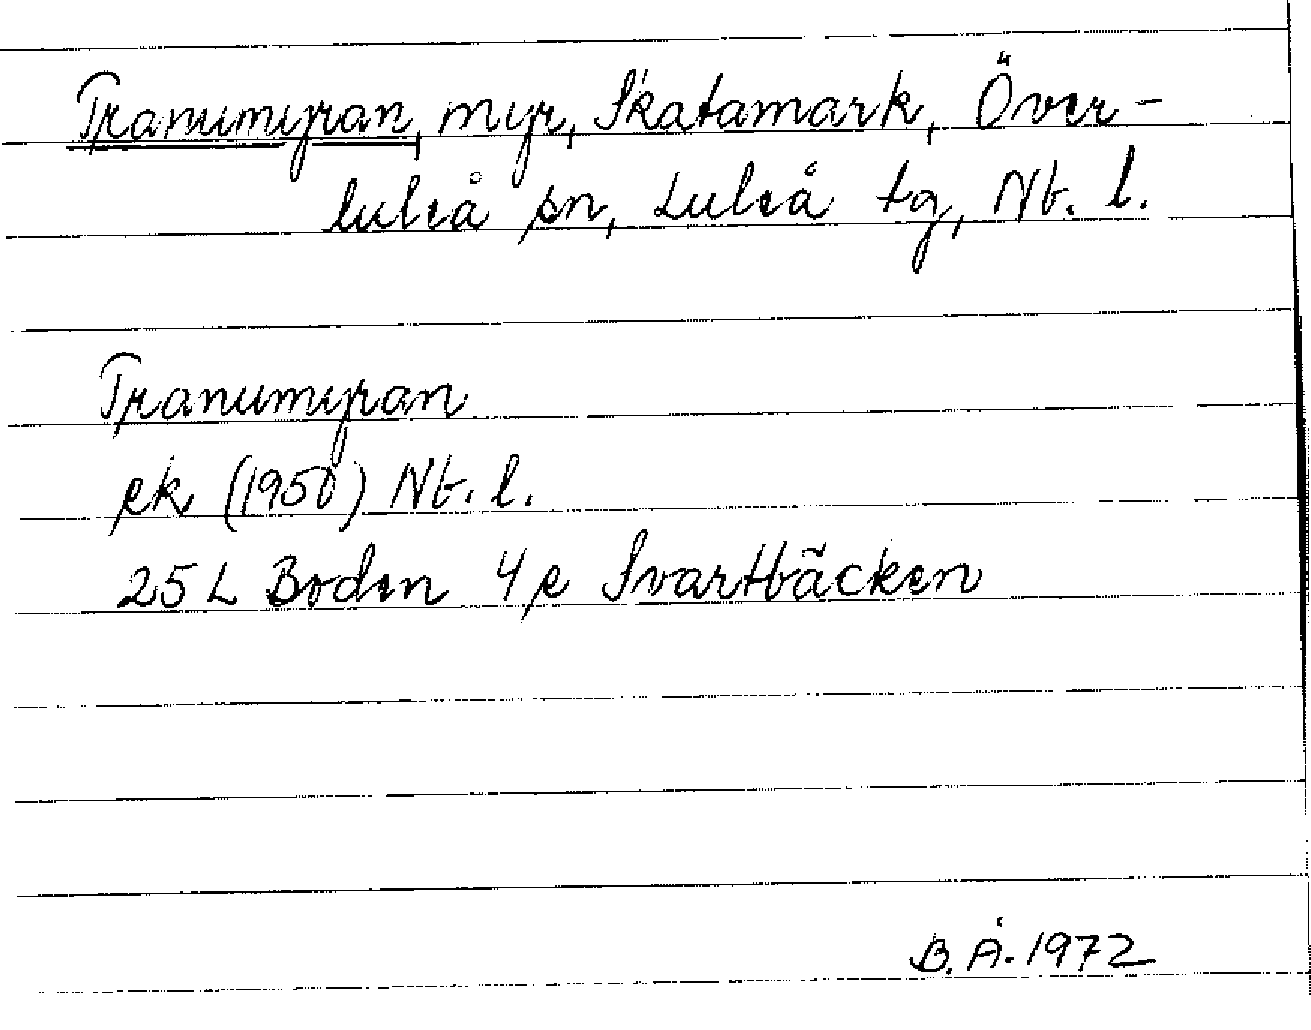 Tranumyran, myr, Skatamark, Över-
luleå sn, Luleå tg, Nb. l.
Tranumyran
ek (1950) Nb. l.
25 L Boden 4 e Svartbäcken
B. Å. 1972